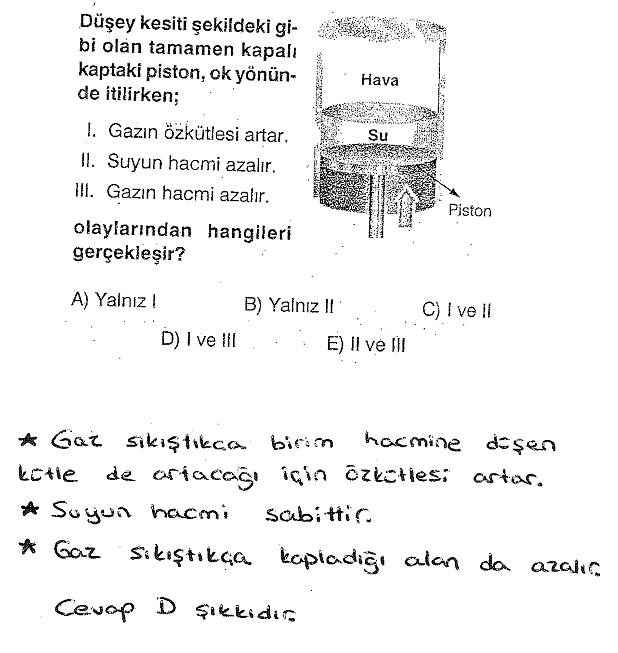 Düşey kesiti şekildeki gi-
bi olan tamamen kapalı
kaptaki piston, ok yönün-
de itilirken;
I. Gazın özkütlesi artar.
II. Suyun hacmi azalır.
III. Gazın hacmi azalır.
olaylarından hangileri
gerçekleşir?
Hava
Su
Piston
A) Yalnız I B) Yalnız II C) I ve II
D) I ve III E) II ve III
★ Gaz sıkıştıkca birim hacmine düşen
kütle de artacağı için özkütlesi artar.
★ Suyun hacmi sabittir.
★ Gaz sıkıştıkça kapladığı alan da azalır.
Cevap D şıkkıdır.